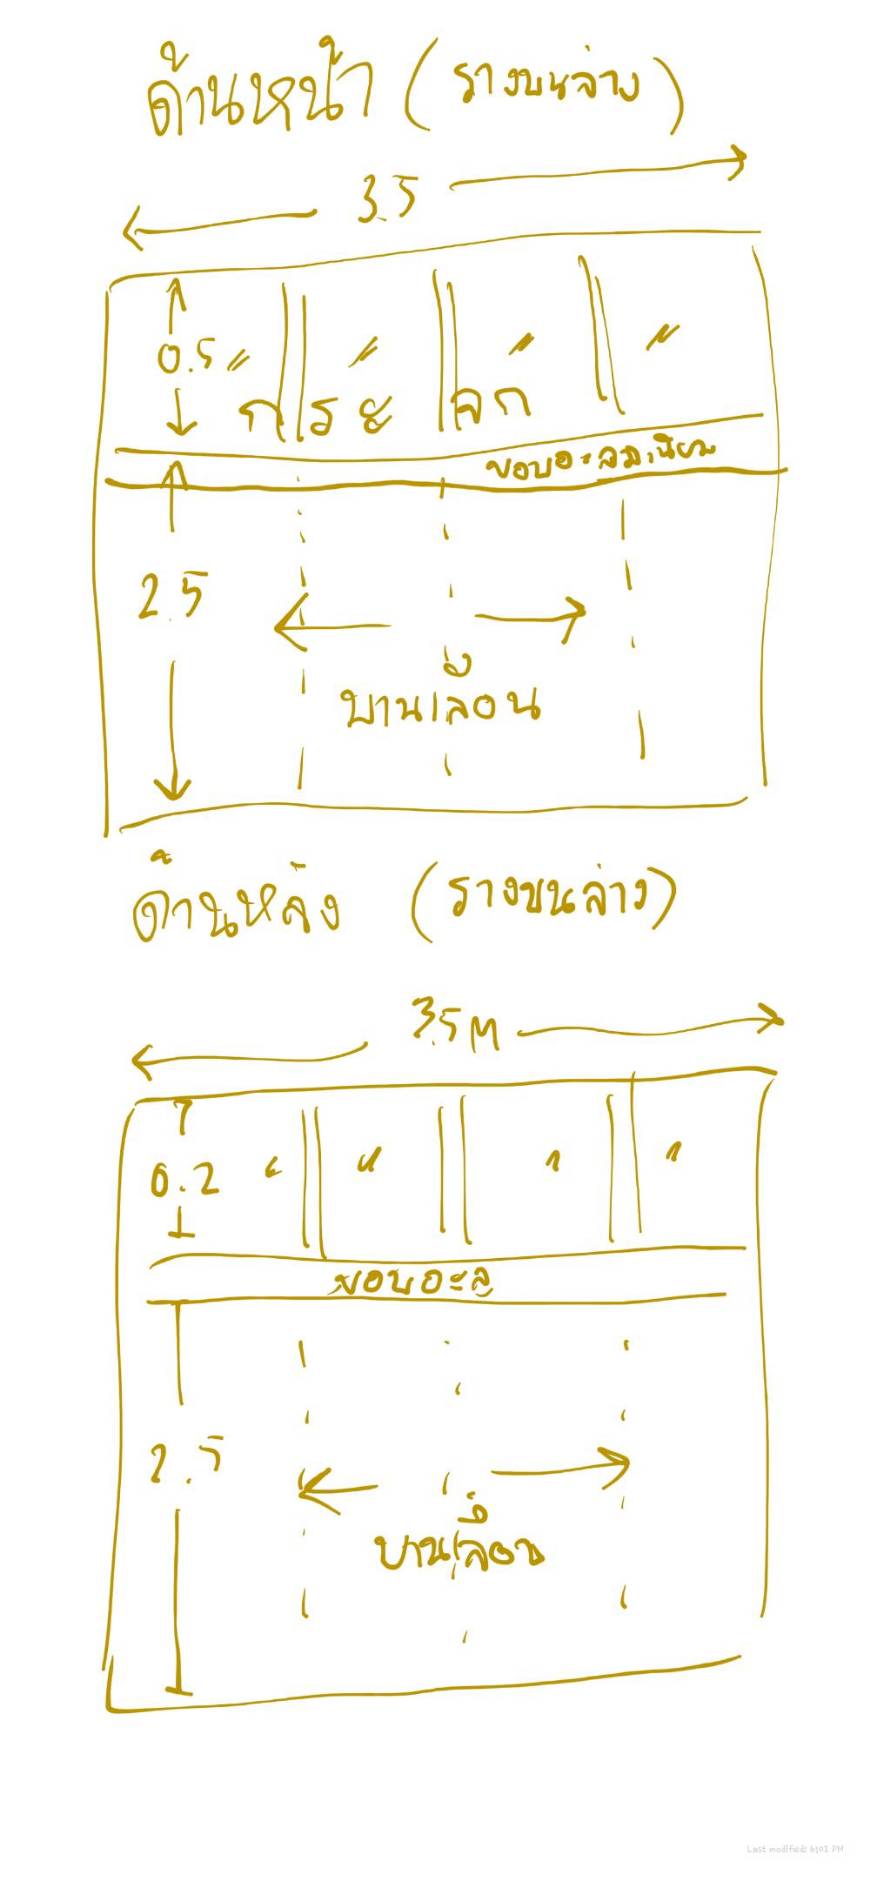 ด้านหน้า (รางบนล่าง)
3.5
0.5 〃 〃 〃 〃
กระจก
ขอบอะลูมิเนียม
2.5
บานเลื่อน
ด้านหลัง (รางบนล่าง)
3.5 M
0.2 〃 〃 〃 〃
ขอบอะลู
2.5
บานเลื่อน
Last modified: 6:01 PM